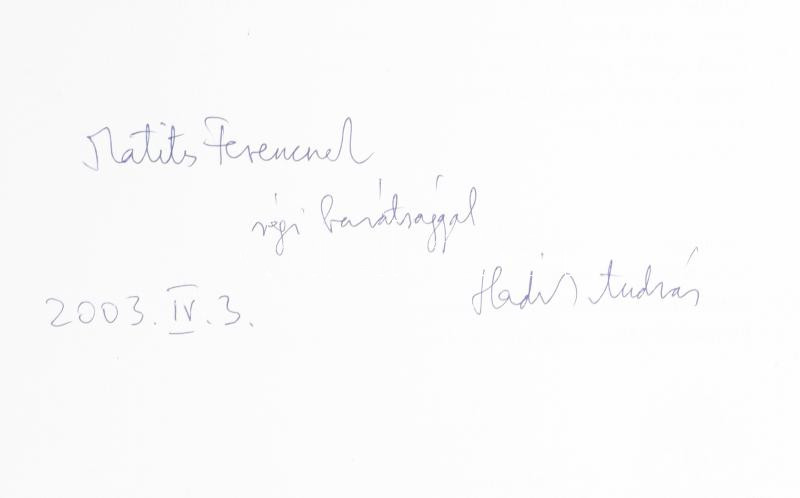 Matits Ferencnek
régi barátsággal
Hadik András
2003. IV. 3.